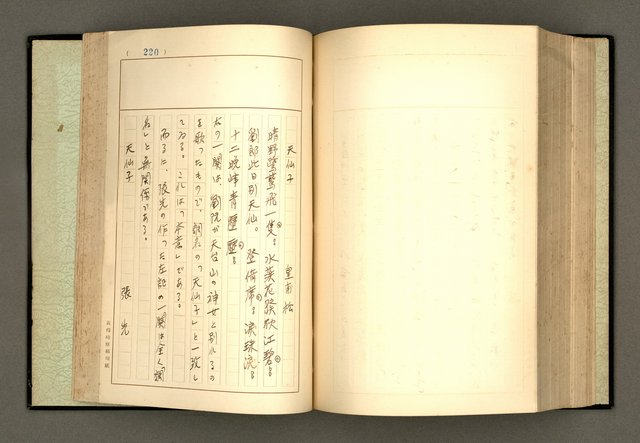 (220)
天仙子　皇甫松
晴野鷺鷥飛一隻。水葓花發秋江碧。
劉郎此日別天仙。登綺席。淚珠滴。
十二晚峰青歷歷。
右の一闋は、劉阮が天台山の神女と別れるの
を歌つたもので、調名の「天仙子」と一致し
てゐる。これは「本意」である。
而るに、張先の作つた左記の一闋は全く調
名と無関係である。
天仙子　張先